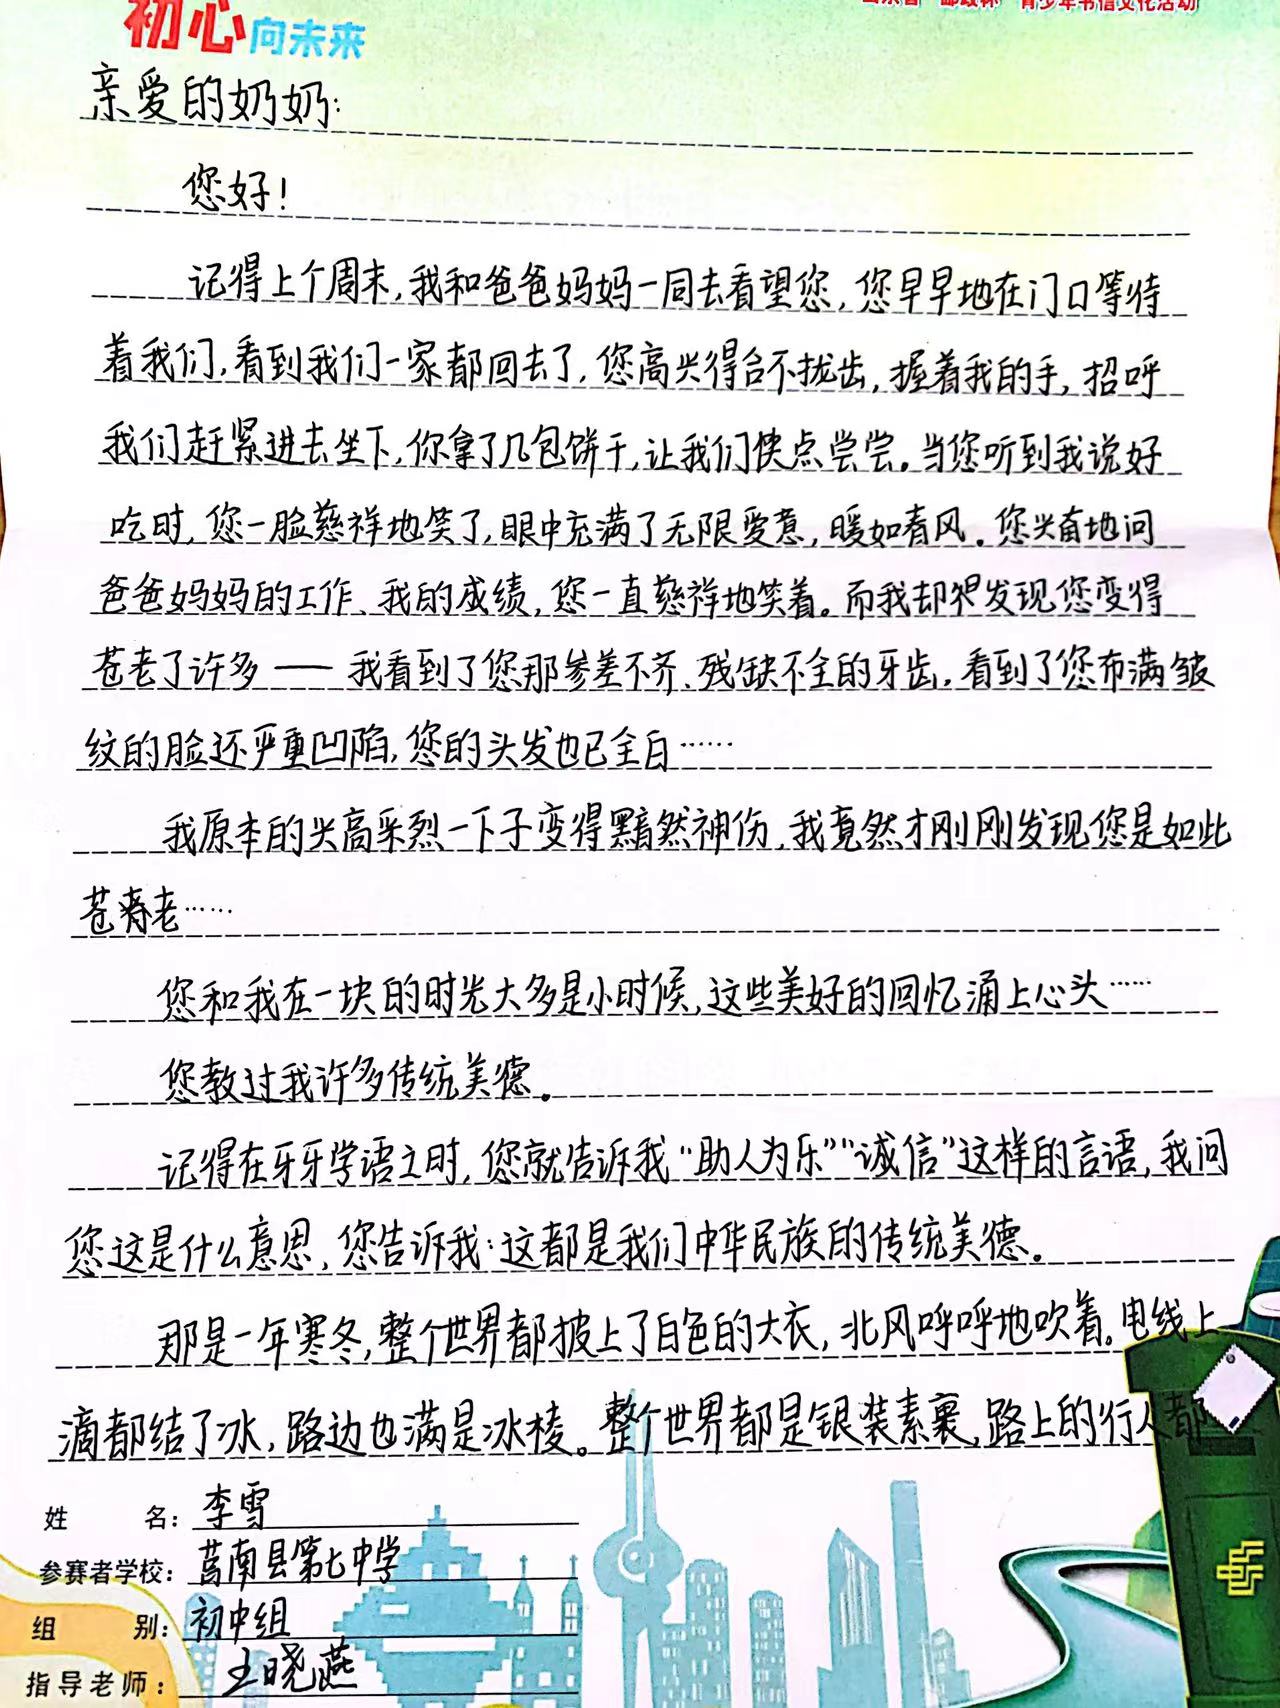 初心向未来
青少年书信文化活动
亲爱的奶奶:
您好!
记得上个周末,我和爸爸妈妈一同去看望您,您早早地在门口等待
着我们,看到我们一家都回去了,您高兴得合不拢齿,握着我的手,招呼
我们赶紧进去坐下,你拿了几包饼干,让我们快点尝尝。当您听到我说好
吃时,您一脸慈祥地笑了,眼中充满了无限爱意,暖如春风。您兴奋地问
爸爸妈妈的工作、我的成绩,您一直慈祥地笑着。而我却发现您变得
苍老了许多——我看到了您那参差不齐、残缺不全的牙齿,看到了您布满皱
纹的脸还严重凹陷,您的头发也已全白……
我原本的兴高采烈一下子变得黯然神伤,我竟然才刚刚发现您是如此
苍老……
您和我在一块的时光大多是小时候,这些美好的回忆涌上心头……
您教过我许多传统美德。
记得在牙牙学语之时,您就告诉我“助人为乐”“诚信”这样的言语,我问
您这是什么意思,您告诉我:这都是我们中华民族的传统美德。
那是一年寒冬,整个世界都披上了白色的大衣,北风呼呼地吹着。电线上
滴都结了冰,路边也满是冰棱。整个世界都是银装素裹,路上的行人都
姓 名: 李雪
参赛者学校: 莒南县第七中学
组 别: 初中组
指导老师: 王晓燕